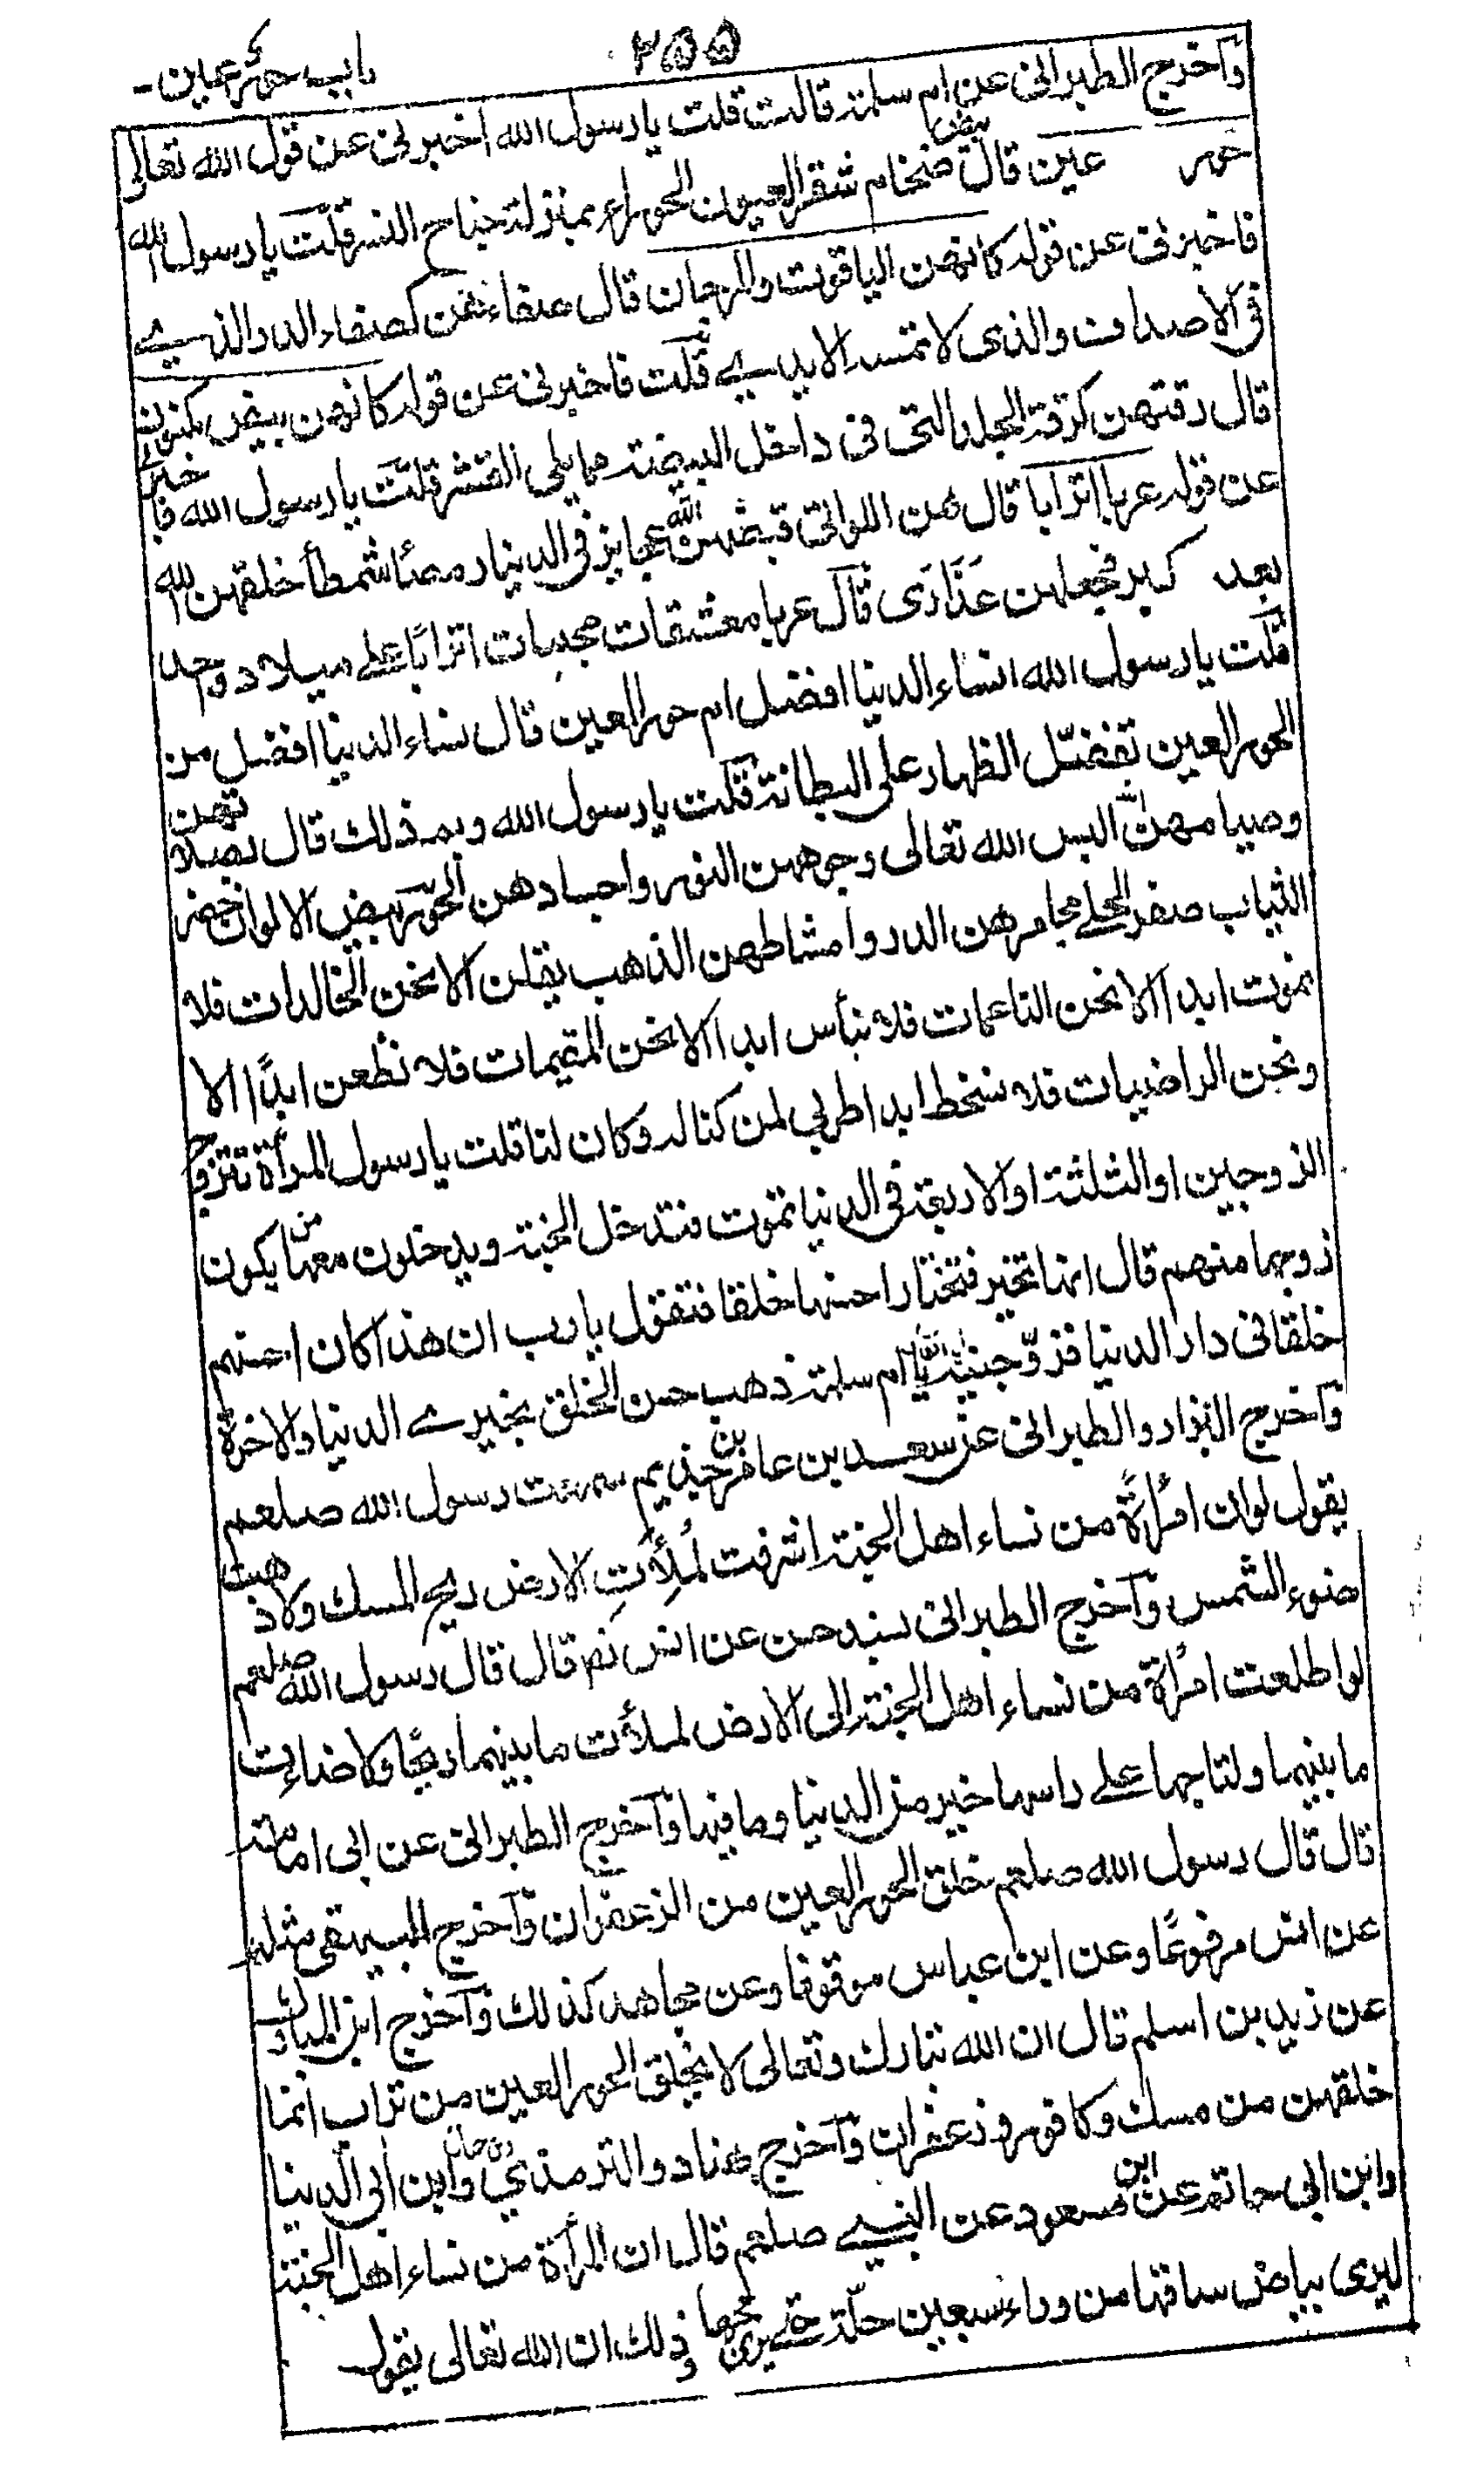 ٢٥٥
باب حور عين -
وآخرج الطبرانی عن ام سلمة قالت قلت يا رسول الله اخبرنی عن قول الله تعالی
حور عين قال بيض ضخام شفر العيون الحوراء بمنزلة جناح النسر قلت يا رسول الله
فاخبرنی عن قوله كانهن الياقوت والمرجان قال صفاءهن كصفاء الدر الذی
فی الاصداف والذی لا تمسه الايدی قلت فاخبرنی عن قوله كانهن بيض مكنون
قال رقتهن كرقة الجلد التی فی داخل البيضة مما يلی القشر قلت يا رسول الله فاخبرنی
عن قوله عربا اترابا قال هن اللواتی قبضهن الله عجايز فی الدنيا رمصًا شمطًا خلقهن الله
بعد كبر فجعلهن عَذَارَی قال عربا معشقات محببات اترابًا علے ميلاد واحد
قلت يا رسول الله انساء الدنيا افضل ام حور العين قال نساء الدنيا افضل من
الحور العين تفضّل الظهار علی البطانة قلت يا رسول الله وبم ذلك قال بصلاتهن
وصيامهن البس الله تعالی وجوههن النور واجسادهن الحرير بيض الالوان خضر
الثياب صفر الحلے مجامرهن الدر وامشاطهن الذهب يقلن الا نحن الخالدات فلا
نموت ابدا الا نحن الناعمات فلا نبأس ابدا الا نحن المقيمات فلا نظعن ابدًا الا
ونحن الراضيات فلا نسخط ابدا طربی لمن كنا له وكان لنا قلت يا رسول المرأة تتزوج
الزوجين او الثلثة او الاربعة فی الدنيا تموت فتدخل الجنة ويدخلون معها من يكون
زوجها منهم قال انها تخير فتختار احسنها خلقا فتقول يا رب ان هذا كان احسنهم
خلقا فی دار الدنيا فزوّجنيه يا ام سلمة ذهب حسن الخلق بخيرے الدنيا والاخرة
وآخرج البزار والطبرانی عن سعد بن عامر بن خذيم سمعت رسول الله صلعم
يقول لو ان امرأة من نساء اهل الجنة اشرفت لملأت الارض ريح المسك ولاذهبت
ضوء الشمس وآخرج الطبرانی بسند حسن عن انس قال قال رسول الله صلعم
لو اطلعت امرأة من نساء اهل الجنة الی الارض لملأت ما بينهما ريحًا ولاضاءت
ما بينهما ولتاجها علے راسها خير من الدنيا وما فيها وآخرج الطبرانی عن ابی امامة
قال قال رسول الله صلعم خلق الحور العين من الزعفران وآخرج البيهقی مثله
عن انس مرفوعًا وعن ابن عباس موقوفا وعن مجاهد كذلك وآخرج ابن المبارك
عن زيد بن اسلم قال ان الله تبارك وتعالی لا يخلق الحور العين من تراب انما
خلقهن من مسك وكافور وزعفران وآخرج هناد والترمذي وابن ابی الدنيا
وابن ابی حاتم عن ابن مسعود عن النبے صلعم قال ان المرأة من نساء اهل الجنة
ليری بياض ساقها من وراء سبعين حلّة حتے يری مخها وذلك ان الله تعالی يقول